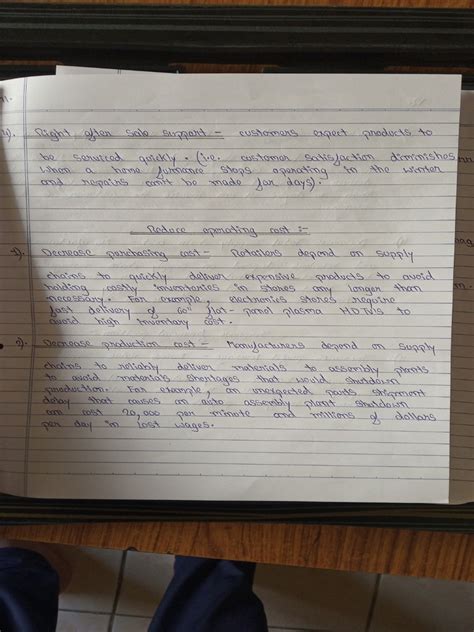 11.
4). Right after sale support - customers expect products to
be serviced quickly. (i.e. customer satisfaction diminishes
when a home furnance stops operating in the winter
and repairs can't be made for days).
Reduce operating cost :-
Decrease purchasing cost - Retailors depend on supply
chains to quickly deliver expensive products to avoid
holding costly inventories in stores any longer than
necessary. For example, electronics stores require
fast delivery of 60" flat-panel plasma HDTVs to
avoid high inventory cost.
Decrease production cost - Manufacturers depend on supply
chains to reliably deliver materials to assembly plants
to avoid materials shortages that would shutdown
production. For example, an unexpected parts shipment
delay that causes an auto assembly plant shutdown
can cost 20,000 per minute and millions of dollars
per day in lost wages.